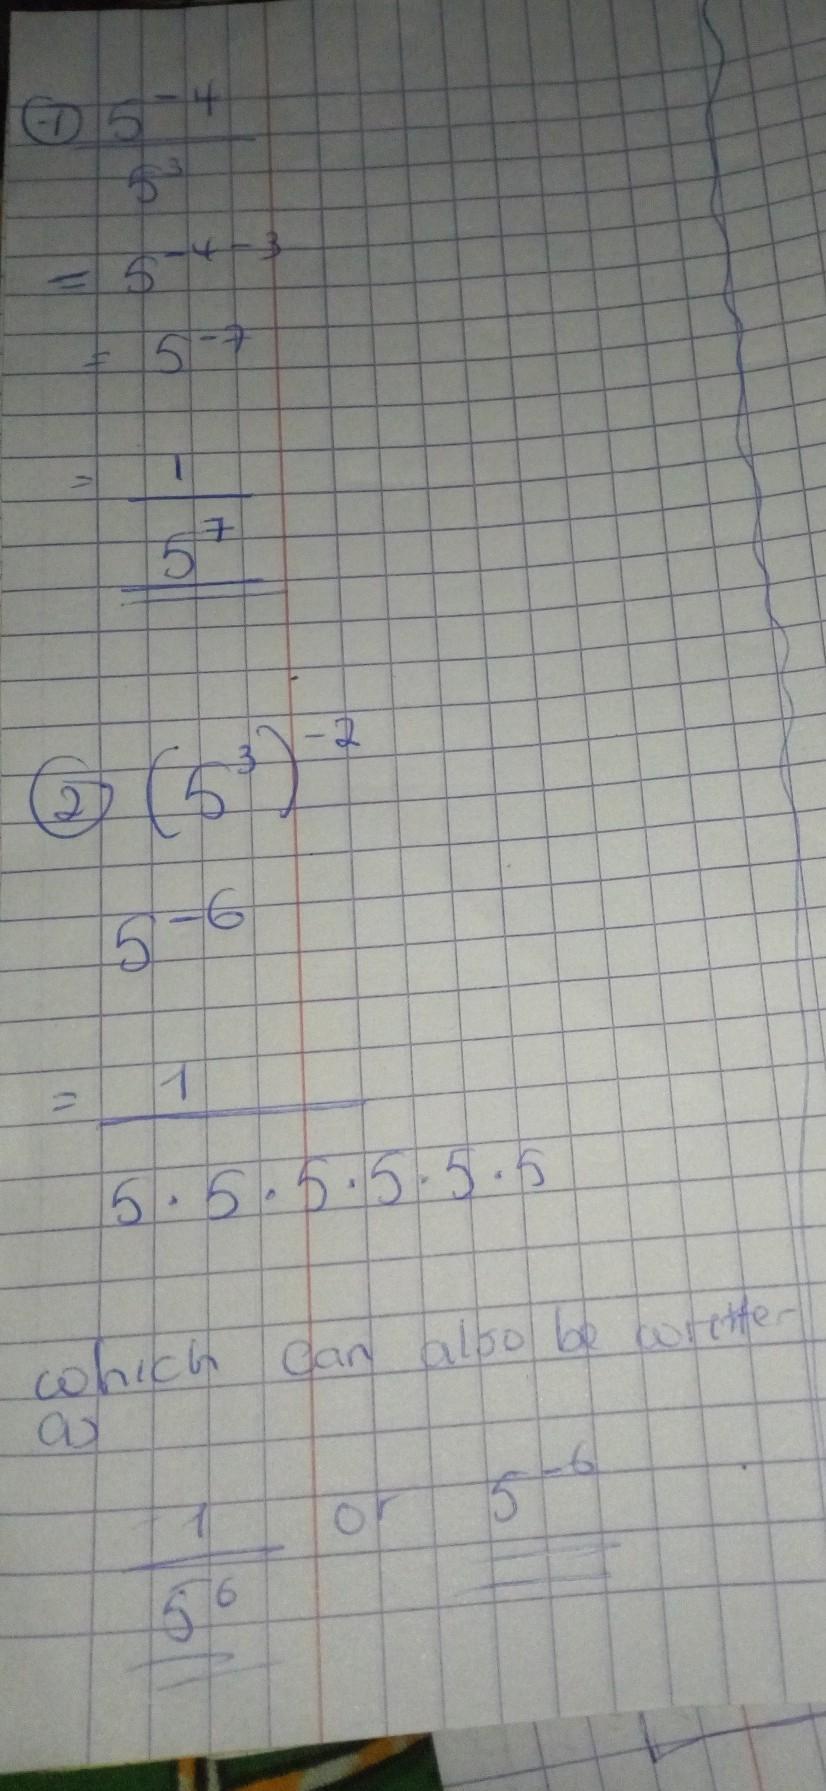 ① 5⁻⁴
5³
= 5⁻⁴⁻³
= 5⁻⁷
= 1
5⁷
② (5³)⁻²
5⁻⁶
= 1
5 · 5 · 5 · 5 · 5 · 5
which can also be
as
1 or 5⁻⁶
5⁶